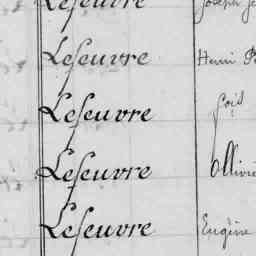 Lefeuvre Joseph
Lefeuvre Henri
Lefeuvre fçois
Lefeuvre Ollivie
Lefeuvre Eugène